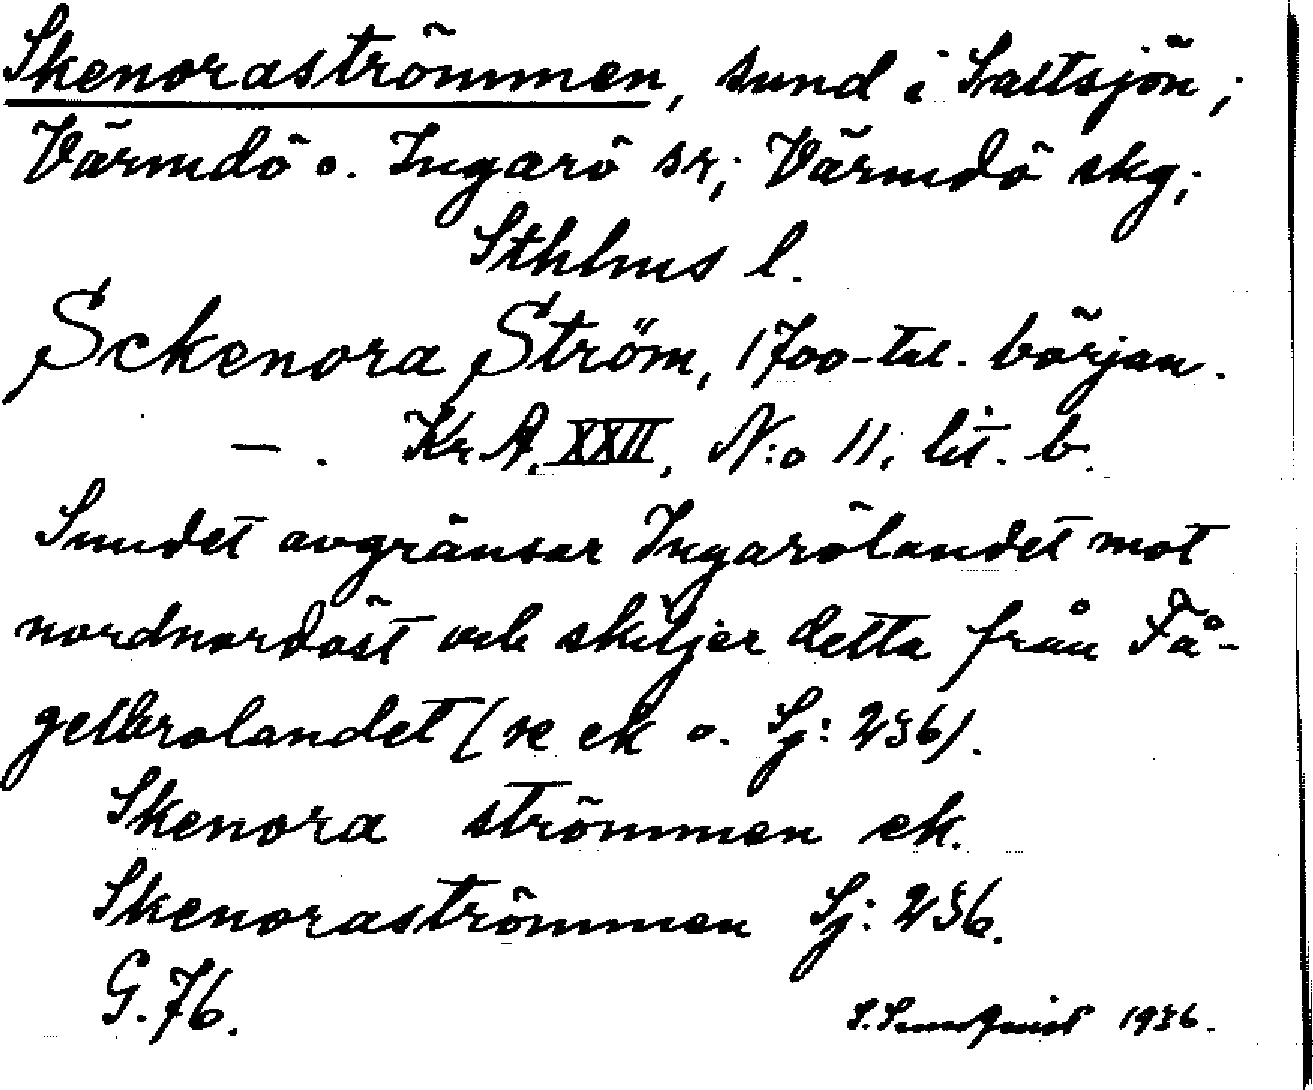 Skenoraströmmen, sund i Saltsjön;
Värmdö o. Ingarö sr; Värmdö skg;
Sthlms l.
Sckenora Ström, 1700-tal. början.
— . Kr.A. XXII, N:o 11, lit. b.
Sundet avgränsar Ingarölandet mot
nordnordöst och skiljer detta från Få-
gelbrolandet (se ek o. Sj: 236).
Skenora strömmen ek.
Skenoraströmmen Sj: 236.
G. 76.
S. Sundqvist 1936.